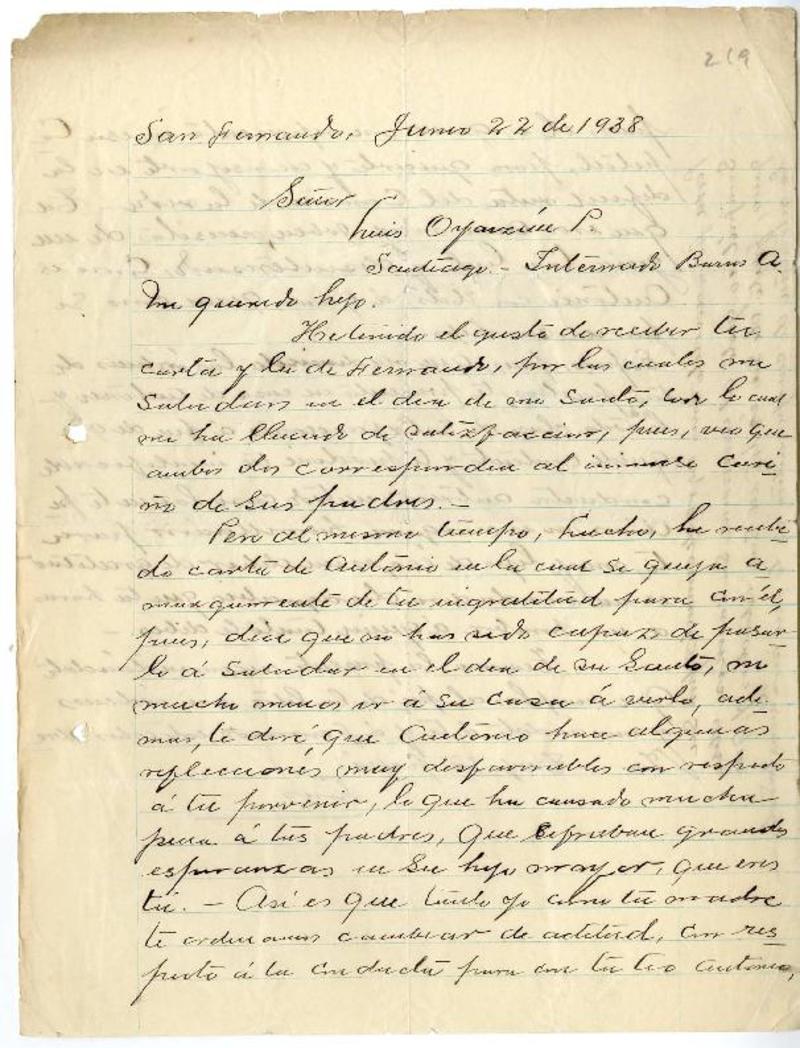 219
San Fernando, Junio 22 de 1938
Señor
Luis Oyarzún P.
Santiago. - Internado Barros A.
Mi querido hijo.
He tenido el gusto de recibir tu
carta y la de Fernando, por las cuales me
saludan en el dia de mi Santo, con lo cual
me ha llenado de satisfaccion, pues, veo que
ambos dos corresponden al inmenso cari-
ño de sus padres. -
Pero al mismo tiempo, Lucho, he recibi-
do carta de Antonio en la cual se queja a
margamente de tu ingratitud para con él,
pues, dice que no has sido capaz de pasar-
lo á saludar en el dia de su Santo, ni
mucho menos ir á su casa á verlo, ade-
mas, te diré, que Antonio hace algunas
reflecciones muy desfavorables con respecto
á tu porvenir, lo que ha causado mucha
pena á tus padres, que cifraban grandes
esperanzas en su hijo mayor, que eres
tú. - Asi es que tanto yo como tu madre
te ordenamos cambiar de actitud, con res-
pecto á la conducta para con tu tio Antonio,